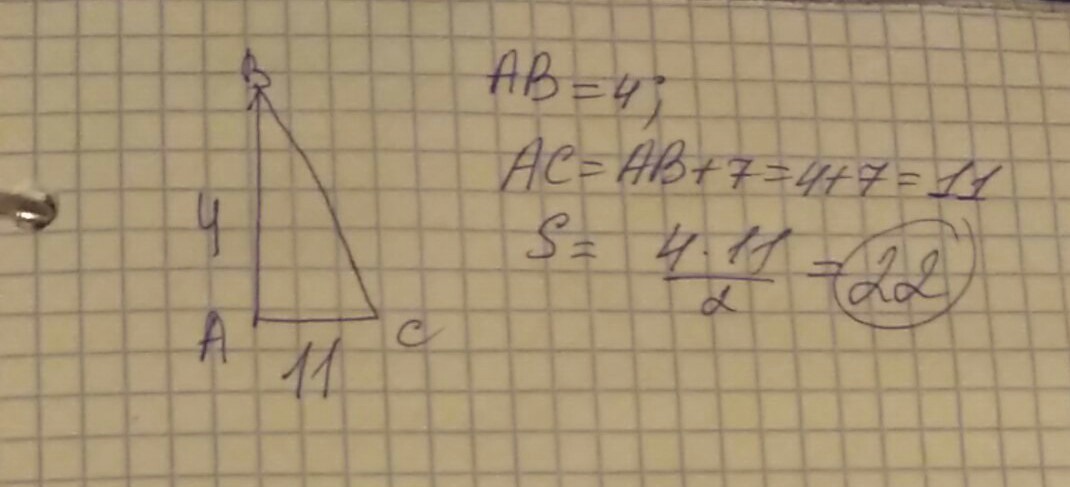 B
AB = 4;
AC = AB + 7 = 4 + 7 = 11
4
S = 4 · 11 / 2 = 22
A
C
11